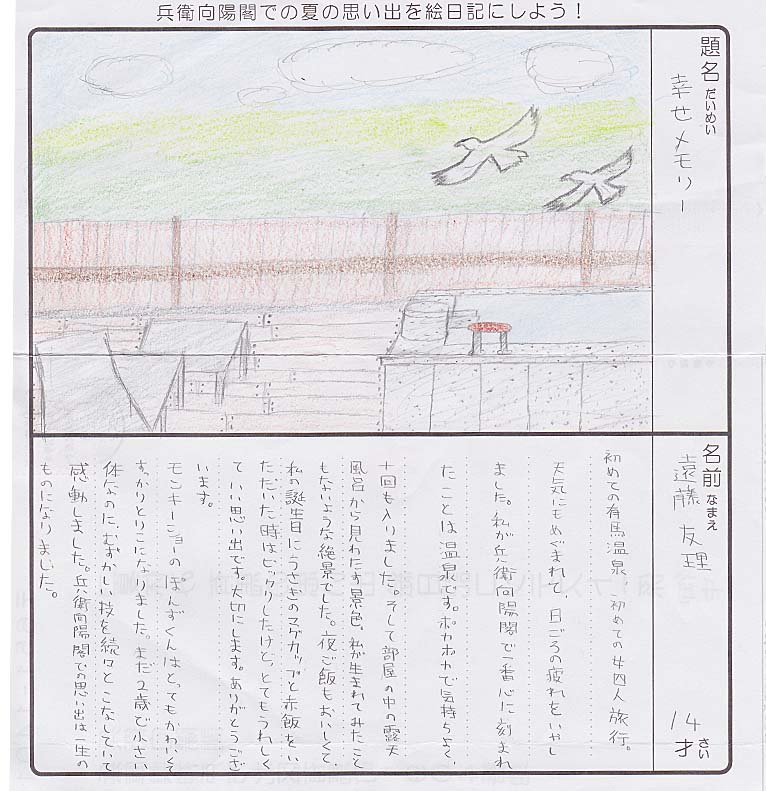 兵衛向陽閣での夏の思い出を絵日記にしよう！
題名 だいめい
幸せメモリー
名前 なまえ
遠藤 友理
14才 さい
初めての有馬温泉、初めての女四人旅行。
天気にもめぐまれて 日ごろの疲れをいやし
ました。私が兵衛向陽閣で一番心に刻まれ
たことは温泉です。ポカポカで気持ちよく、
十回も入りました。そして部屋の中の露天
風呂から見わたす景色、私が生まれてみたこと
もないような絶景でした。夜ご飯もおいしくて、
私の誕生日にうさぎのマグカップと赤飯をい
ただいた時はビックリしたけど、とてもうれしく
ていい思い出です。大切にします。ありがとうござ
います。
モンキーショーのぽんずくんはとってもかわいくて
すっかりとりこになりました。まだ2歳で小さい
体なのに、むずかしい技を続々とこなしていて
感動しました。兵衛向陽閣での思い出は一生の
ものになりました。